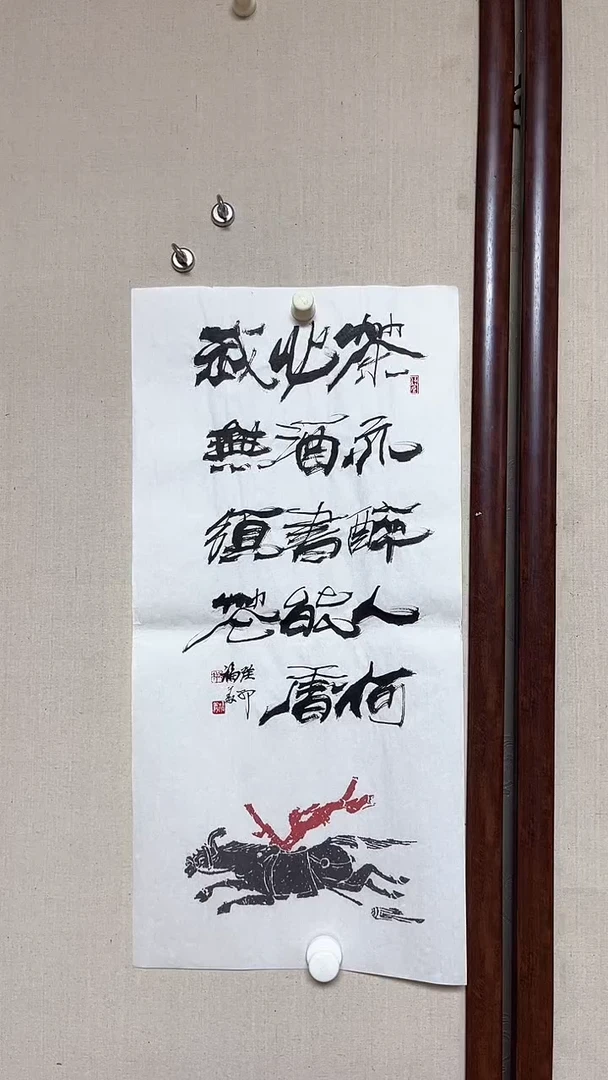 茶亦醉人何
必酒書能香
我無須花
癸卯
福